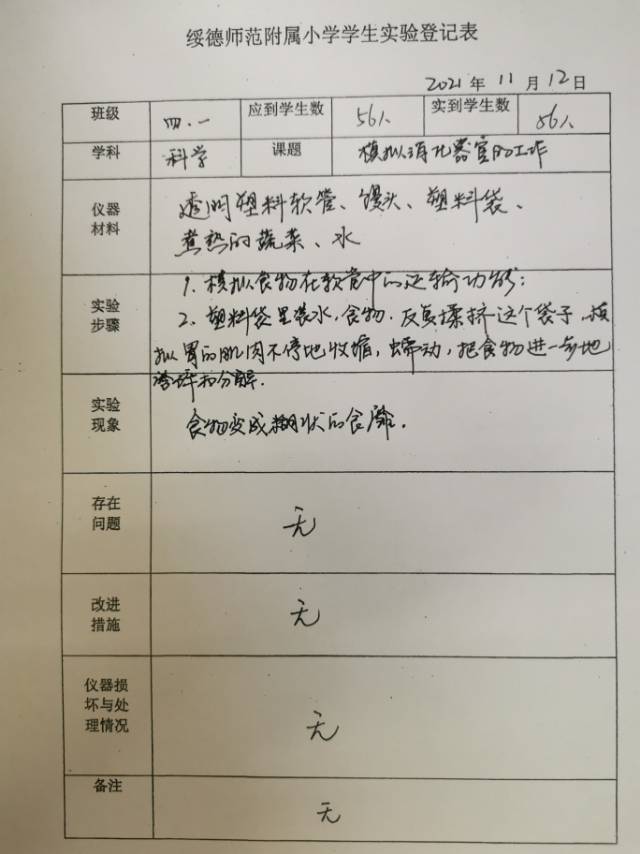 绥德师范附属小学学生实验登记表
2021年11月12日
班级 四.一 应到学生数 56人 实到学生数 56人
学科 科学 课题 模拟消化器官的工作
仪器材料 透明塑料软管、馒头、塑料袋、
煮熟的蔬菜、水
实验步骤 1.模拟食物在软管中的运输功能；
2.塑料袋里装水,食物.反复揉挤这个袋子,模
拟胃的肌肉不停地收缩,蠕动,把食物进一步地
磨碎和分解.
实验现象 食物变成糊状的食糜.
存在问题 无
改进措施 无
仪器损坏与处理情况 无
备注 无